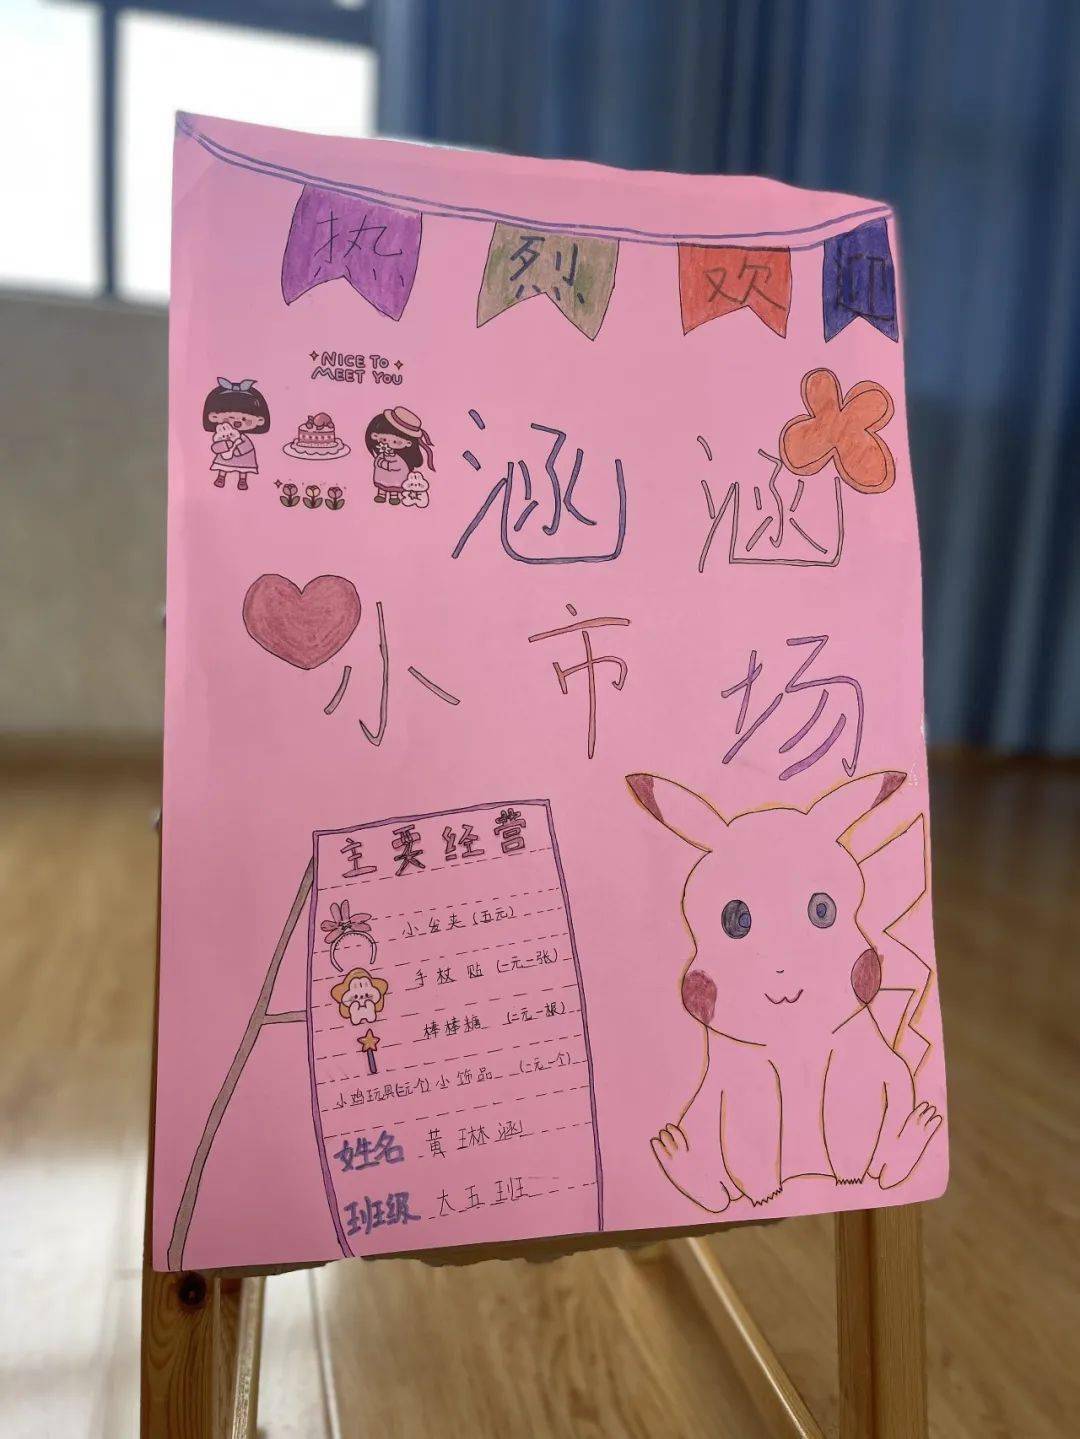 热烈欢迎
NICE TO
MEET YOU
涵涵
小市场
主要经营
小发夹(五元)
手杖贴(一元一张)
棒棒糖(二元一根)
小鸡玩具(三元一个)小饰品(二元一个)
姓名 黄琳涵
班级 大五班